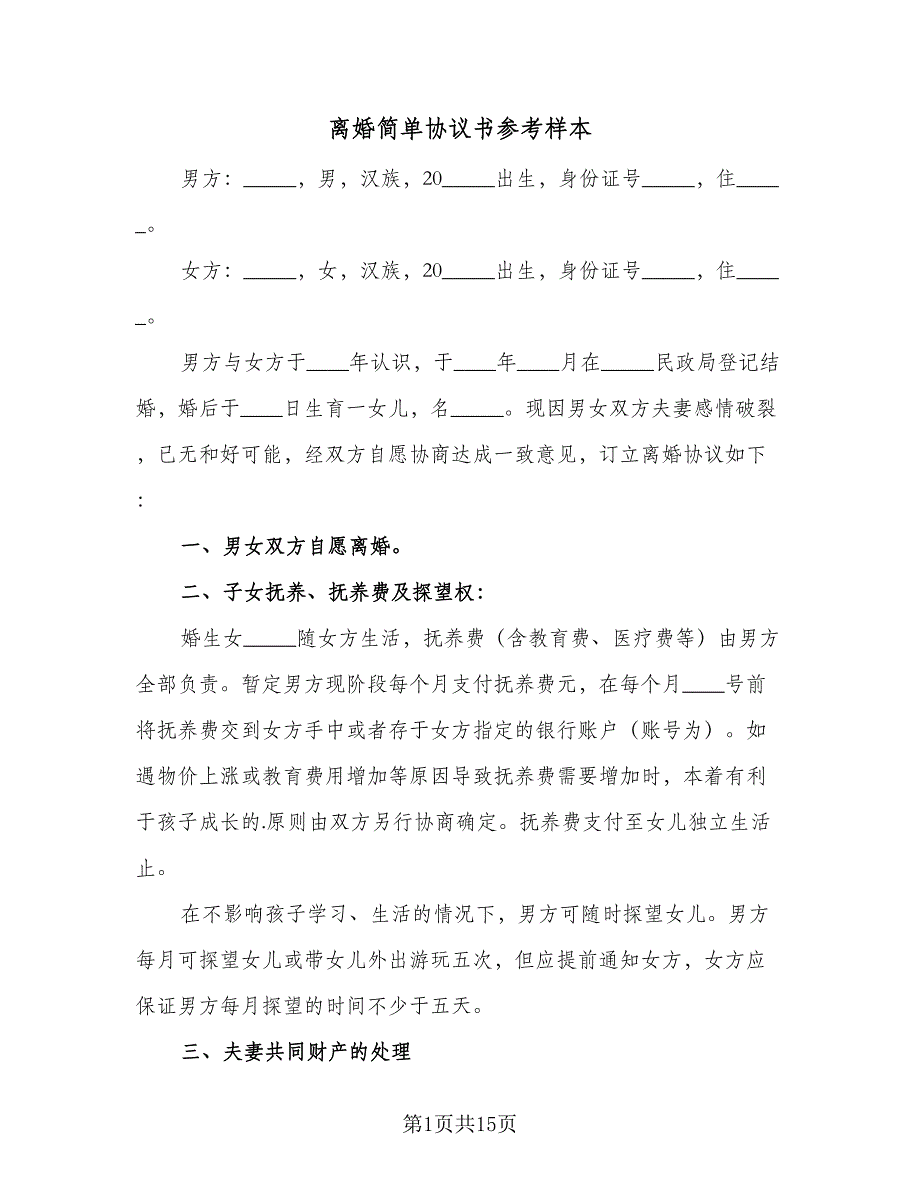 离婚简单协议书参考样本
男方：_____，男，汉族，20_____出生，身份证号_____，住____
_。
女方：_____，女，汉族，20_____出生，身份证号_____，住____
_。
男方与女方于____年认识，于____年____月在_____民政局登记结
婚，婚后于____日生育一女儿，名_____。现因男女双方夫妻感情破裂
，已无和好可能，经双方自愿协商达成一致意见，订立离婚协议如下
：
一、男女双方自愿离婚。
二、子女抚养、抚养费及探望权：
婚生女_____随女方生活，抚养费（含教育费、医疗费等）由男方
全部负责。暂定男方现阶段每个月支付抚养费元，在每个月____号前
将抚养费交到女方手中或者存于女方指定的银行账户（账号为）。如
遇物价上涨或教育费用增加等原因导致抚养费需要增加时，本着有利
于孩子成长的.原则由双方另行协商确定。抚养费支付至女儿独立生活
止。
在不影响孩子学习、生活的情况下，男方可随时探望女儿。男方
每月可探望女儿或带女儿外出游玩五次，但应提前通知女方，女方应
保证男方每月探望的时间不少于五天。
三、夫妻共同财产的处理
第1页共15页